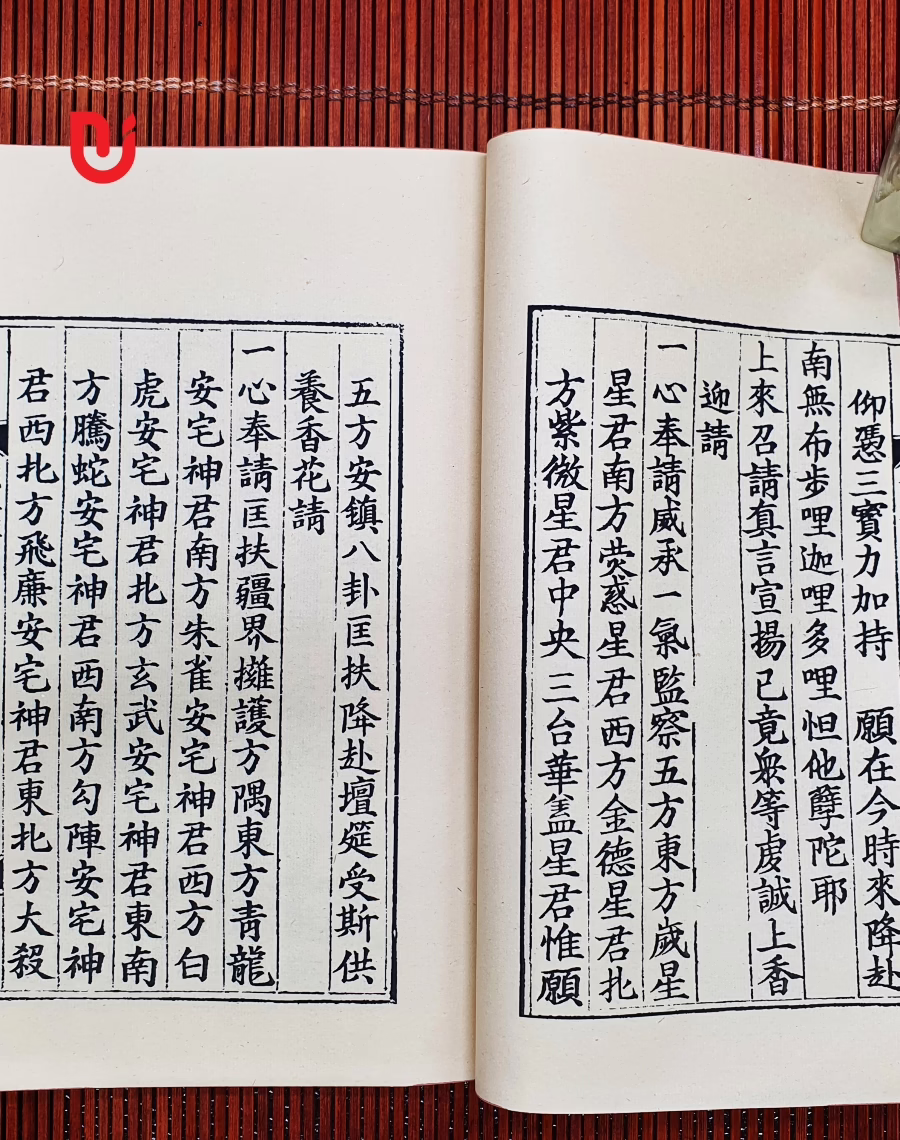 仰憑三寳力加持　願在今時來降赴
南無布步哩迦哩多哩怛他孽陀耶
上來召請真言宣揚已竟衆等虔誠上香
迎請
一心奉請威承一氣監察五方東方歲星
星君南方熒惑星君西方金德星君北
方紫微星君中央三台華盖星君惟願
五方安鎮八卦匡扶降赴壇筵受斯供
養香花請
一心奉請匡扶疆界擁護方隅東方青龍
安宅神君南方朱雀安宅神君西方白
虎安宅神君北方玄武安宅神君東南
方騰蛇安宅神君西南方勾陣安宅神
君西北方飛廉安宅神君東北方大殺